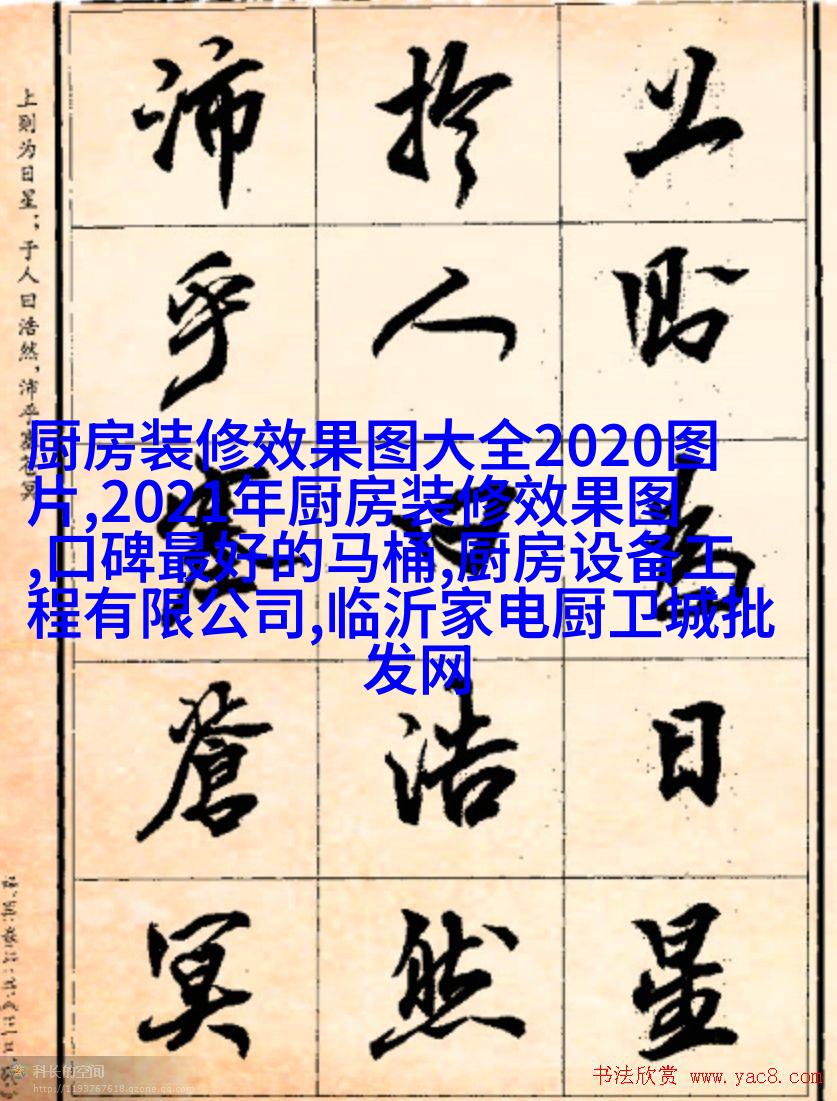 上则为日星；于人曰浩然，沛乎塞苍冥
上則為日星
於人曰浩然
沛乎塞蒼冥
厨房装修效果图大全2020图
片,2021年厨房装修效果图
,口碑最好的马桶,厨房设备工
程有限公司,临沂家电厨卫城批
发网
科长的空间
http://1193767618.qzone.qq.com
书法欣赏 www.yac8.com